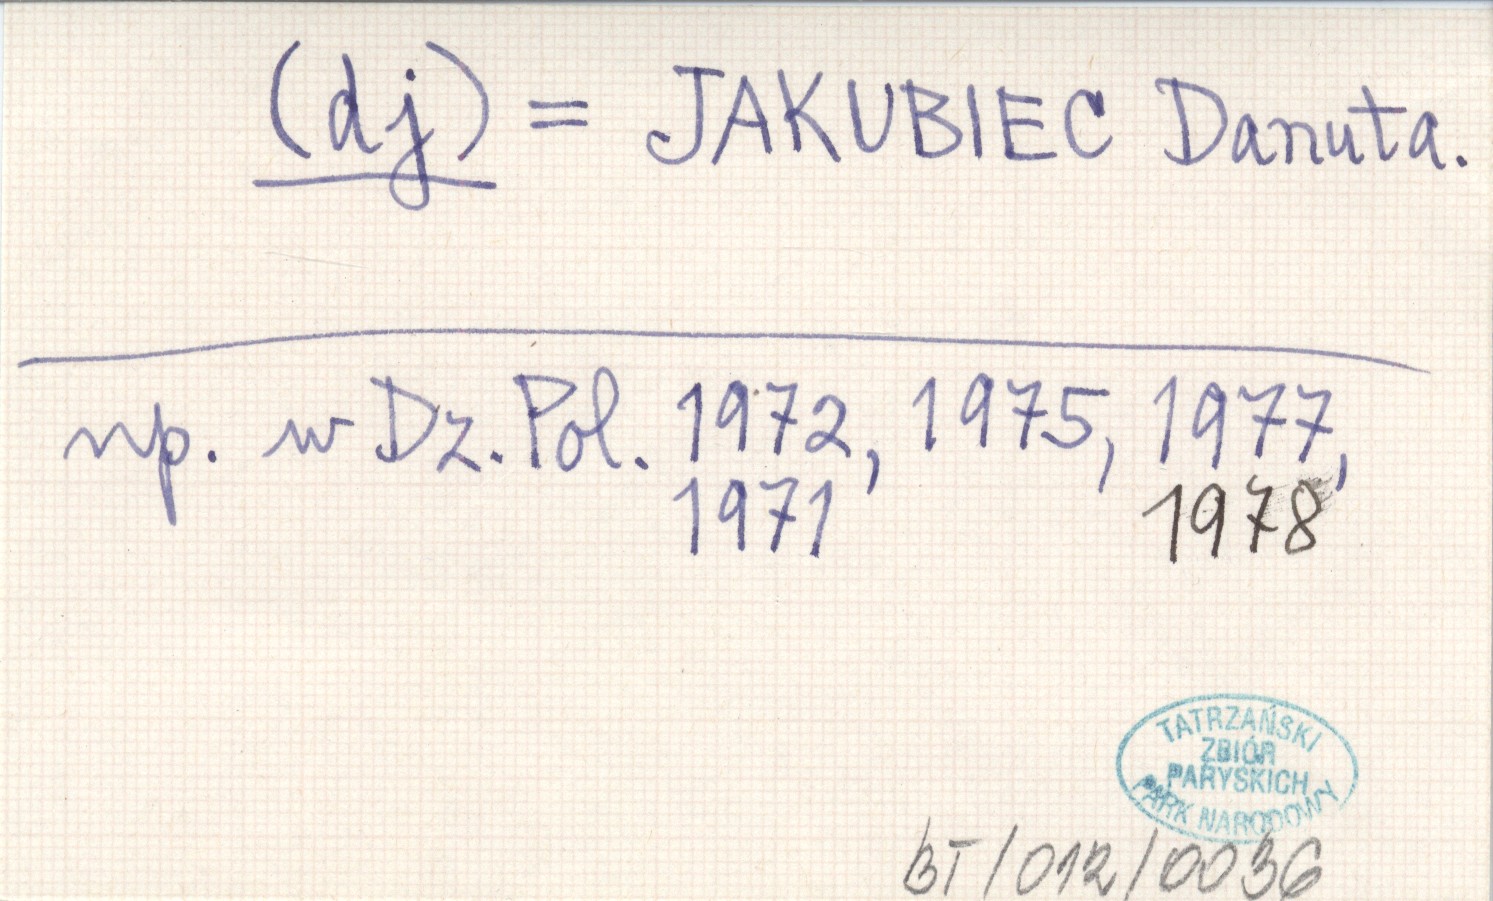 (dj) = JAKUBIEC Danuta.
np. w Dz. Pol. 1972, 1975, 1977,
1971 1978
TATRZAŃSKI
ZBIÓR
PARYSKICH
PARK NARODOWY
BT/012/0036